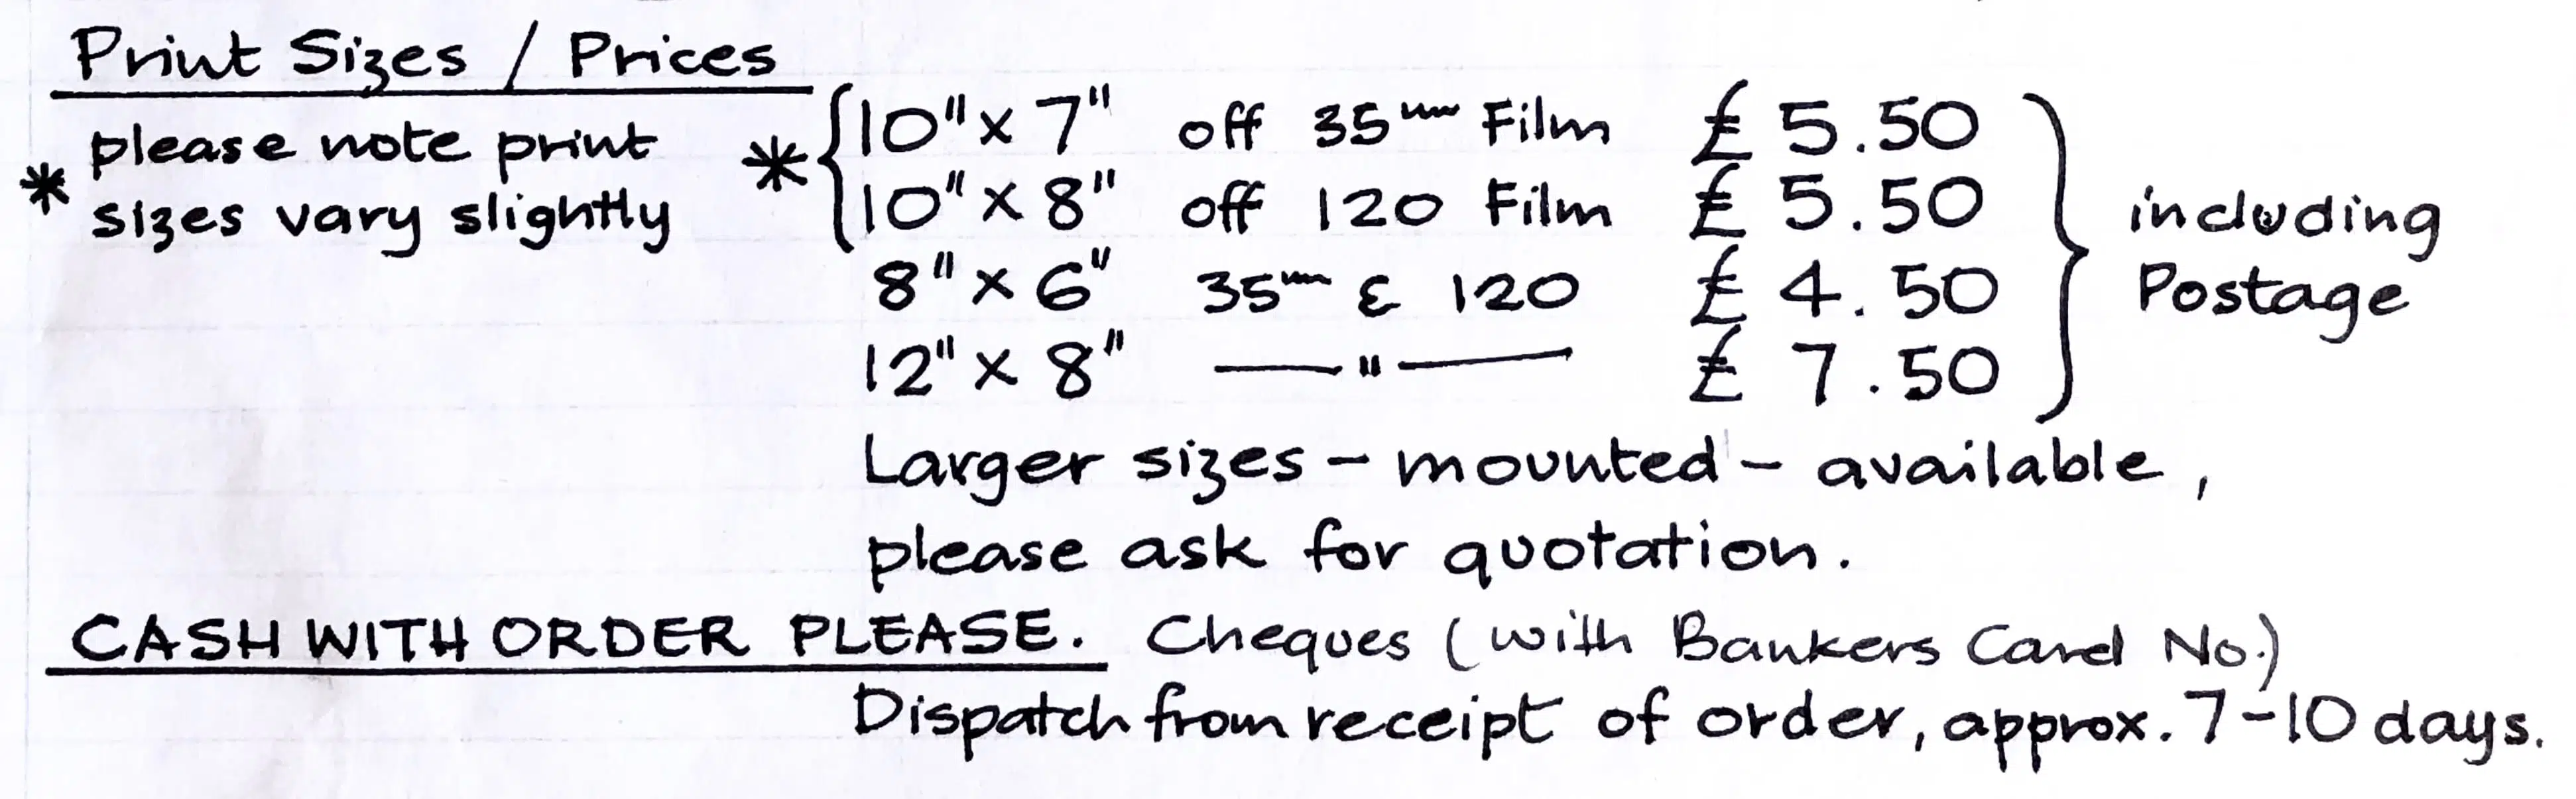 Print Sizes / Prices
* please note print
sizes vary slightly
* { 10" x 7" off 35mm Film £ 5.50
10" x 8" off 120 Film £ 5.50
8" x 6" 35mm & 120 £ 4.50
12" x 8" —— " —— £ 7.50
} including
Postage
Larger sizes - mounted - available,
please ask for quotation.
CASH WITH ORDER PLEASE. Cheques (with Bankers Card No.)
Dispatch from receipt of order, approx. 7-10 days.